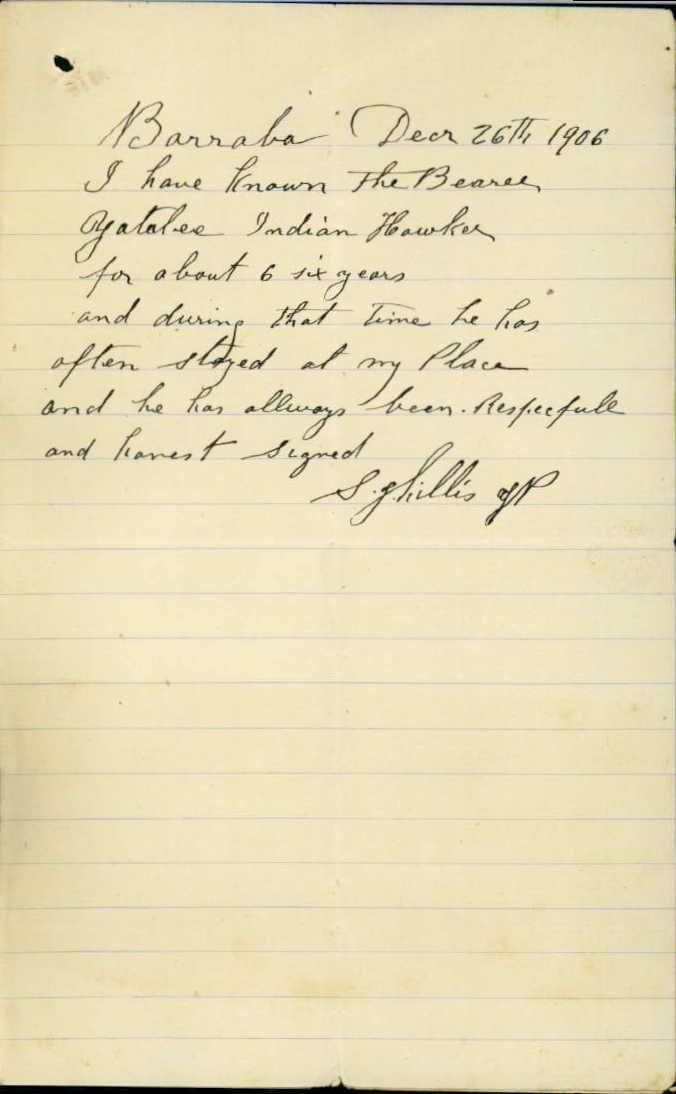 Barraba Decr 26Th 1906
I have Known the Bearer
Yatalee Indian Hawker
for about 6 six years
and during that time he has
often stayed at my Place
and he has allways been. Respecfull
and honest signed
S. JP